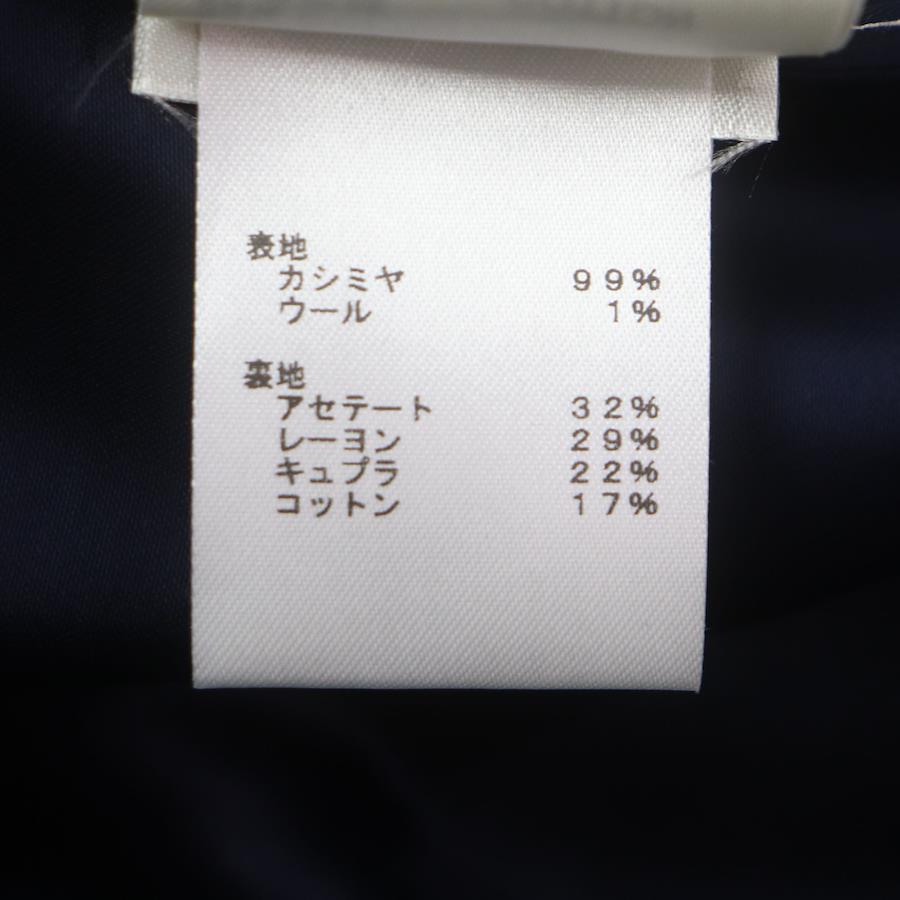 表地
カシミヤ 99%
ウール 1%
裏地
アセテート 32%
レーヨン 29%
キュプラ 22%
コットン 17%